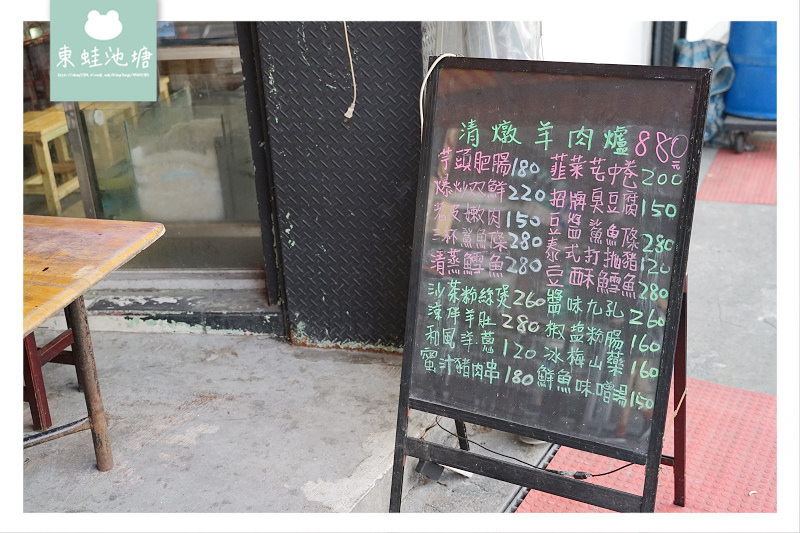 東蛙池塘
清燉羊肉爐 880元
芋頭肥腸 180 韮菜花中卷 200
爆炒双鮮 220 招牌臭豆腐 150
嫩肉 150 豆醬鯊魚條 280
三杯鯊魚條 280 泰式打拋豬 120
清蒸鱈魚 280 豆酥鱈魚 280
沙茶粉絲煲 260 醬味九孔 260
涼拌羊肚 280 椒盐粉腸 160
和風洋蔥 120 冰梅山藥 160
蜜汁豬肉串 180 鮮魚味噌湯 150